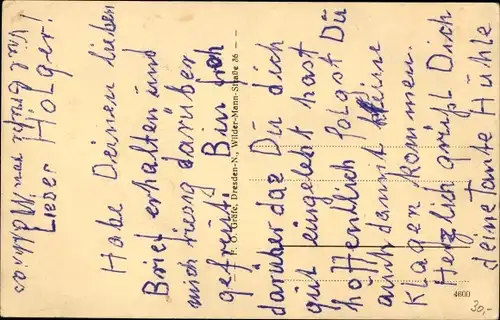 Viele Grüße von
Lieber Holger!
Habe Deinen lieben
Brief erhalten und
mich riesig darüber
gefreut. Bin froh
darüber daz Du dich
gut eingelebt hast
hoffentlich folgst Du
auch damit keine
Klagen kommen.
Herzlich grüßt Dich
deine Tante Hühle
P. O. Gräfe, Dresden-N., Wilder-Mann-Straße 36
4600
30,-